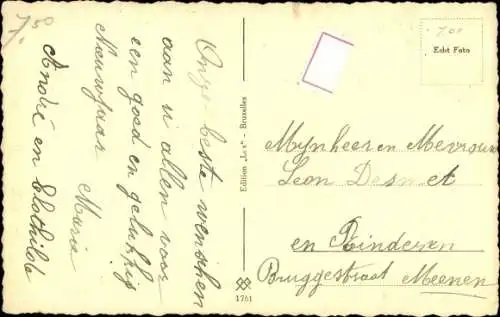 7,50
Onze beste wenschen
aan u allen voor
een goed en gelukkig
Nieuwjaar
Maria
André en Clothilde
Edition „Lex" - Bruxelles
1761
7.00
Echt Foto
Mijnheer en Mevrouw
Leon Desmet
en Kinderen
Bruggestraat Meenen